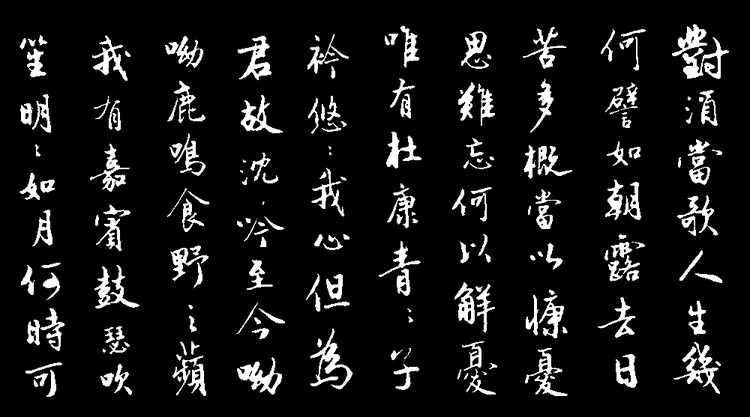 對酒當歌人生幾
何譬如朝露去日
苦多概當以慷憂
思難忘何以解憂
唯有杜康青〻子
衿悠〻我心但為
君故沈吟至今呦
呦鹿鳴食野之蘋
我有嘉賓鼓瑟吹
笙明〻如月何時可